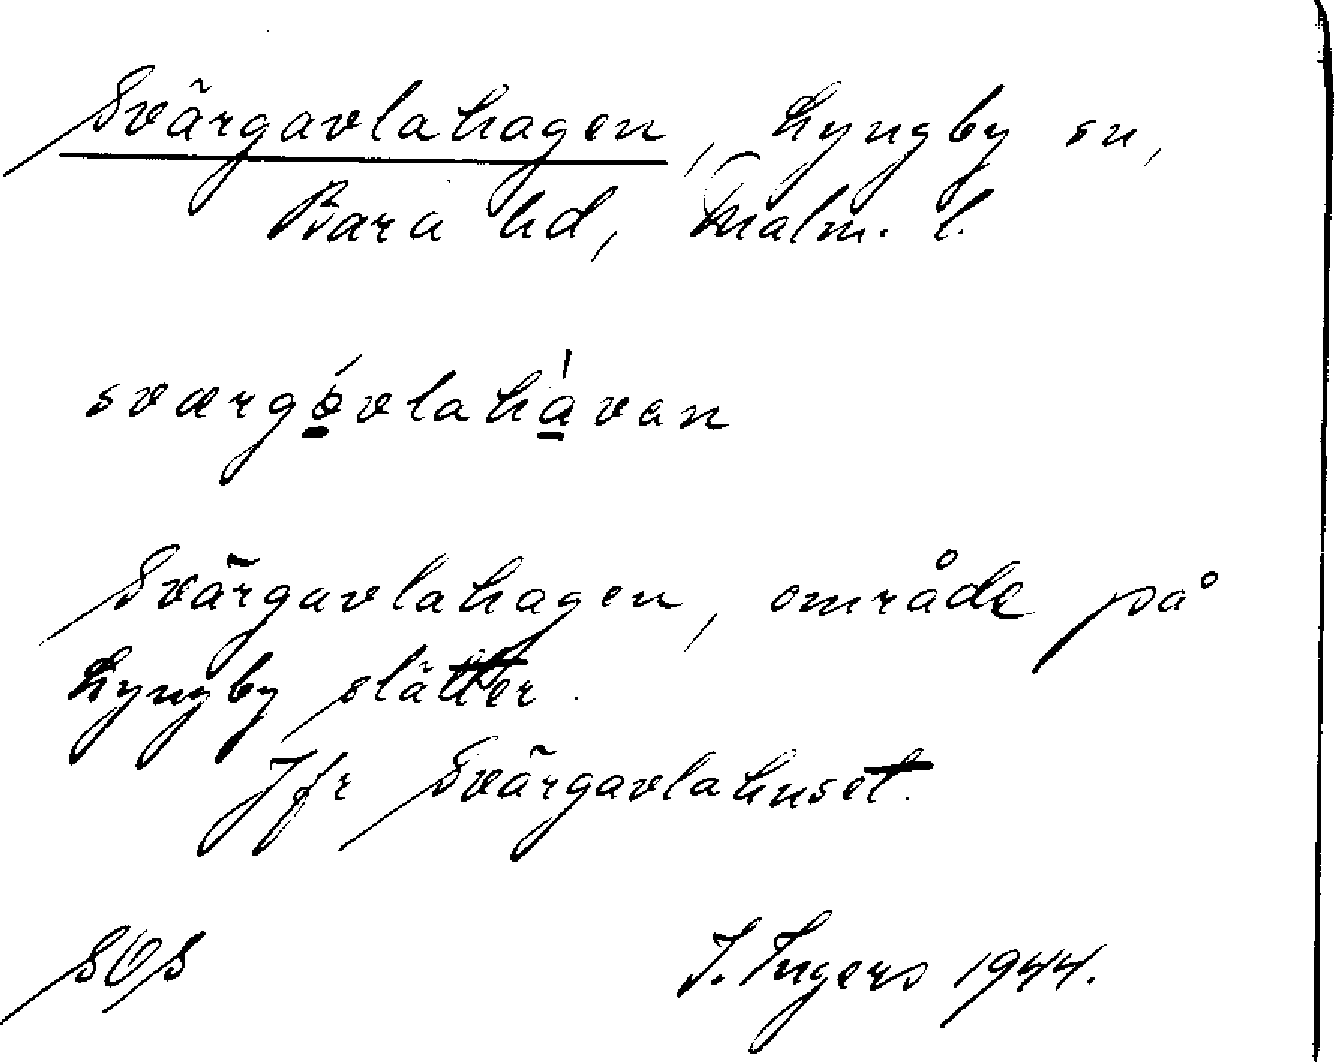 Svärgavlahagen, Lyngby sn,
Bara hd, Malm. l.
sværgóvlahávan
Svärgavlahagen, område på
Lyngby slätter.
Jfr Svärgavlahuset.
SOS I. Ingers 1944.